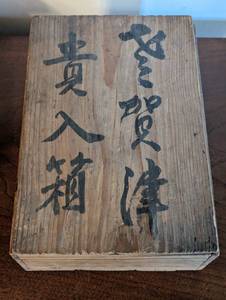 賀津
貴入箱